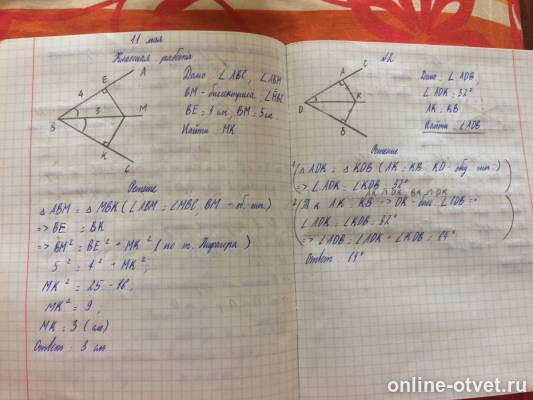 11 мая
Классная работа
A
E
4
5
M
B
K
C
Дано: ∠ABC, ∠ABM
BM - биссектриса ∠MBC
BE = 4 см, BM = 5 см
Найти: MK
Решение
△ ABM = △ MBK (∠ABM = ∠MBC, BM - об.
=> BE = BK
=> BM² = BE² + MK² (по т. Пифагора)
5² = 4² + MK²;
MK² = 25 - 16,
MK² = 9,
MK = 3 (см)
Ответ: 3 см.
№2
C
A
D
K
B
Дано: ∠ADB,
∠ADK = 32°
AK = KB
Найти: ∠ADB
Решение
1) △ ADK = △ KDB (AK = KB, KD - общ.
=> ∠ADK = ∠KDB = 32°
2) Т.к. AK = KB => DK - бис. ∠CDB =>
∠ADK = ∠KDB = 32°
=> ∠ADB = ∠ADK + ∠KDB = 64°
Ответ: 64°
online-otvet.ru